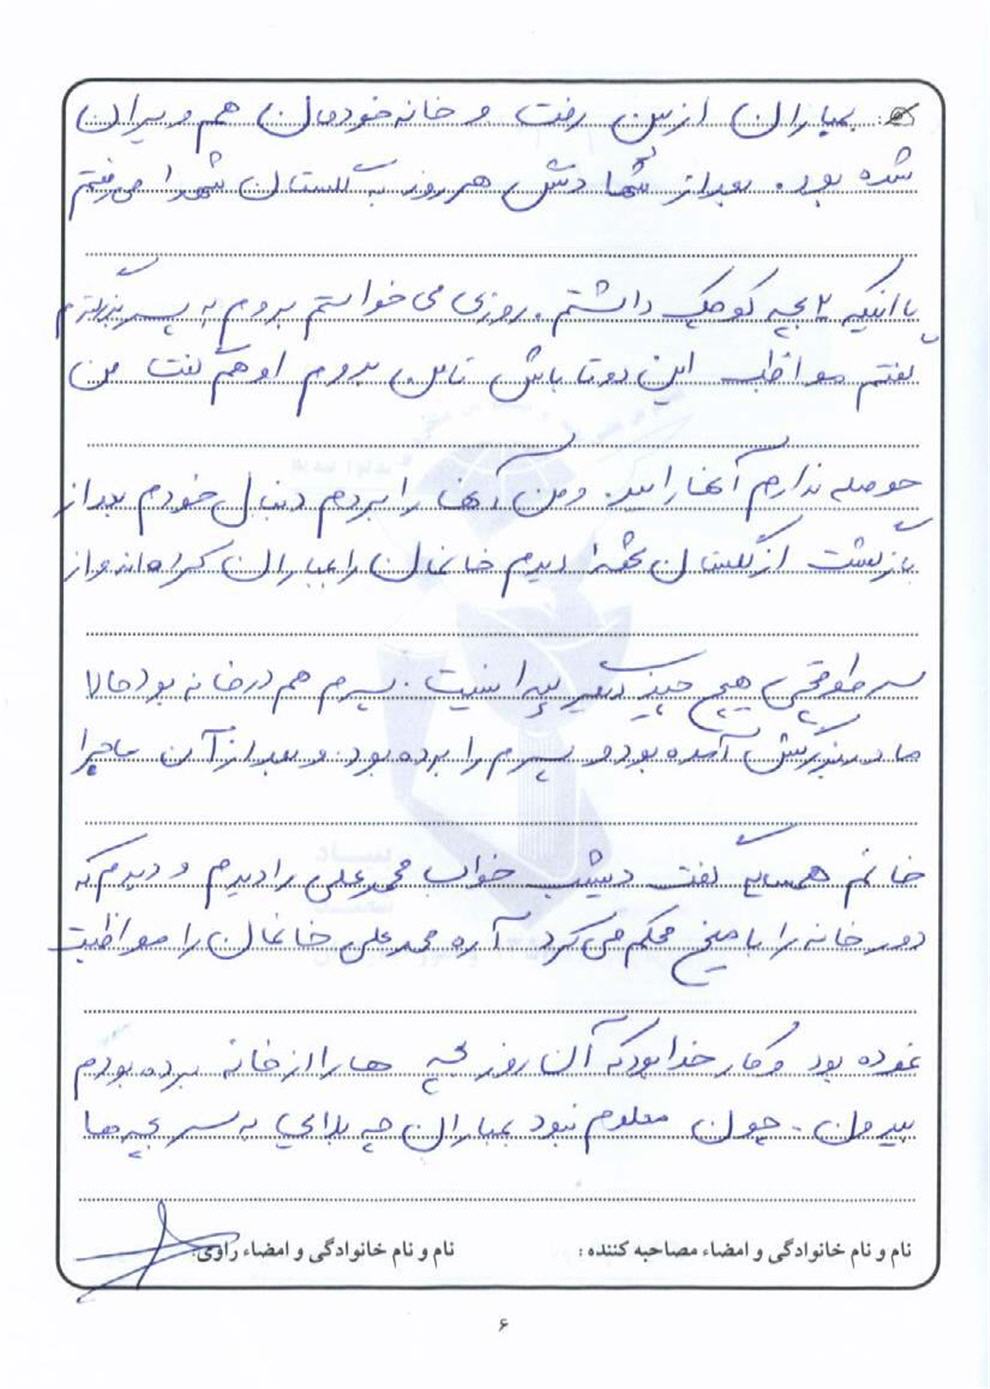 بمباران از بین رفت و خانه خودمان هم ویران
شده بود. بعد از شهادتش هر روز به گلستان شهدا می رفتم
با اینکه ۲ بچه کوچک داشتم. روزی می خواستم بروم به پسر بزرگترم
گفتم مواظب این دو تا باش تا من بروم او هم گفت من
حوصله ندارم آنها را ببر. و من آنها را بردم دنبال خودم بعد از
بازگشت از گلستان شهدا دیدم خانمان را بمباران کرده اند و از
سر طوقچی هیچ چیز دیگر پیدا نیست. پسرم هم در خانه بود حالا
مادربزرگش آمده بود و پسرم را برده بود. و بعد از آن ماجرا
خانم همسایه گفت دیشب خواب محمدعلی را دیدم و دیدم که
دور خانه را با میخ محکم می کرد. آره محمدعلی خانمان را مواظبت
نموده بود و کار خدا بود که آن روز بچه ها را از خانه برده بودم
بیرون. چون معلوم نبود بمباران چه بلایی به سر بچه ها
نام و نام خانوادگی و امضاء مصاحبه کننده : نام و نام خانوادگی و امضاء راوی:
۶